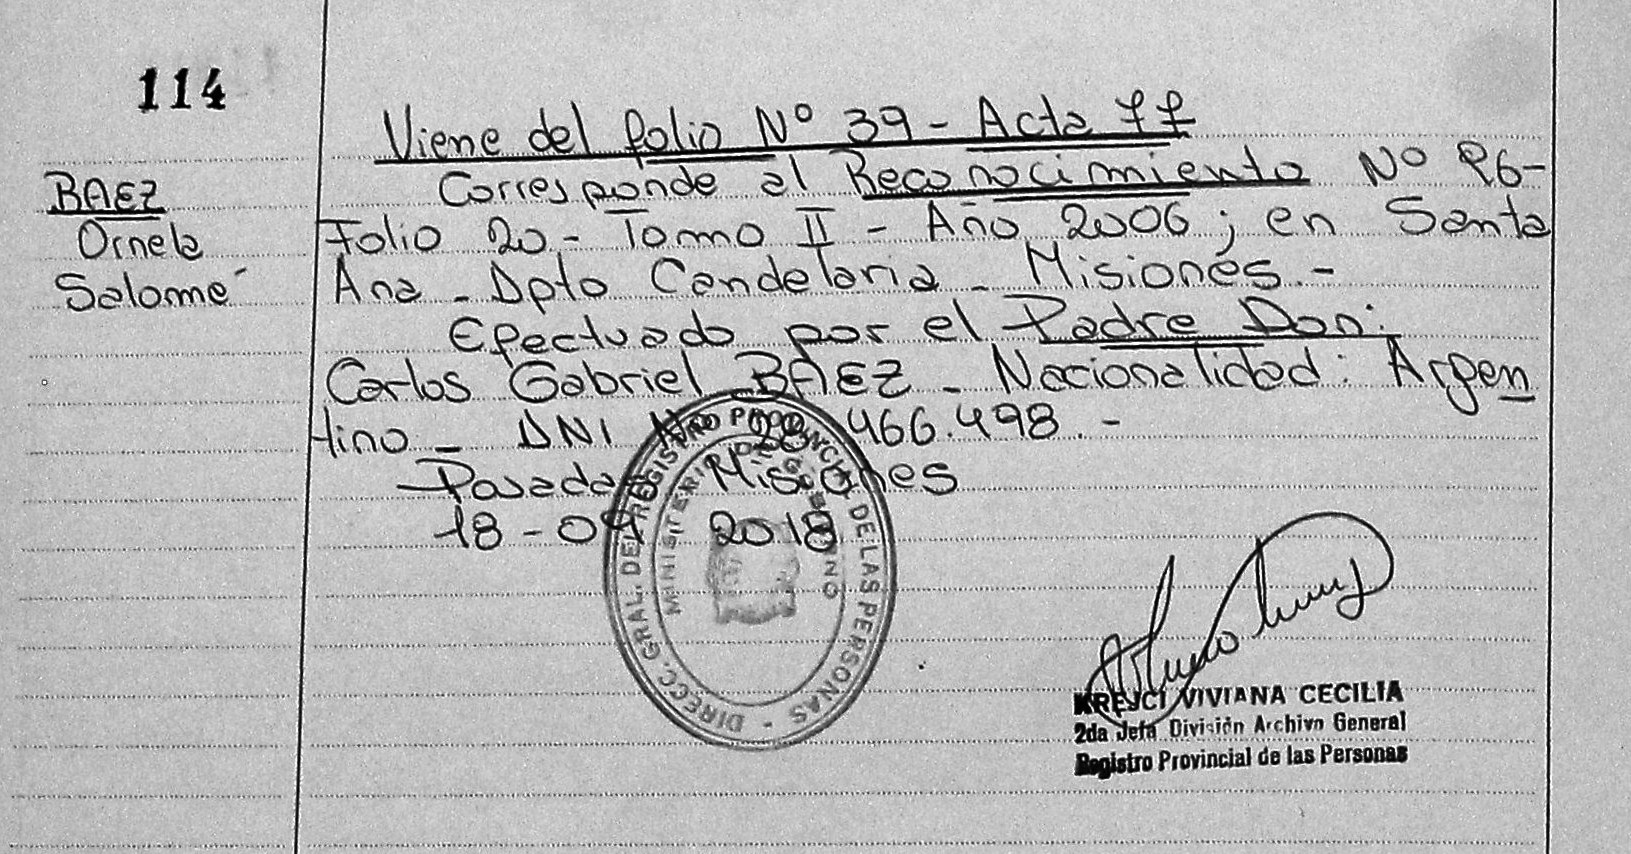 114
Viene del folio Nº 39 - Acta 77
BAEZ
Ornela
Salomé
Corresponde al Reconocimiento Nº 26-
Folio 20 - Tomo II - Año 2006; en Santa
Ana - Dpto Candelaria - Misiones. -
Efectuado por el Padre Don:
Carlos Gabriel BAEZ - Nacionalidad: Argen
tino - DNI Nº 28.466.498. -
Posadas Misiones
18 - 04 2018
DIRECC. GRAL. DEL REGISTRO PROVINCIAL DE LAS PERSONAS -
MINISTERIO DE GOBIERNO
KREJCI VIVIANA CECILIA
2da Jefa División Archivo General
Registro Provincial de las Personas